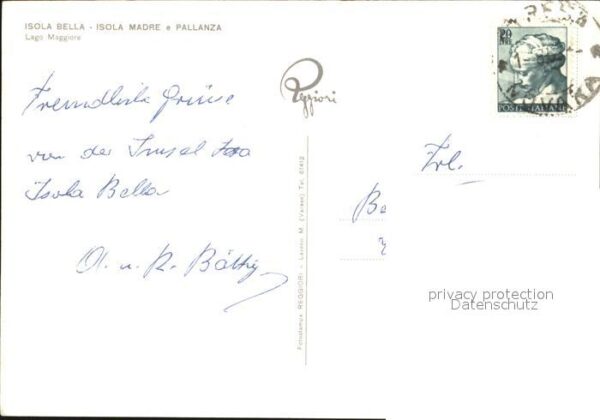 ISOLA BELLA - ISOLA MADRE e PALLANZA
Lago Maggiore
Freundliche Grüsse
von der Insel
Isola Bella
A. u. R. Bättig
Reggiori
Fototampa REGGIORI - Laveno M. (Varese) Tel. 67412
20
LIRE
POSTE ITALIANE
Frl.
Be
privacy protection
Datenschutz